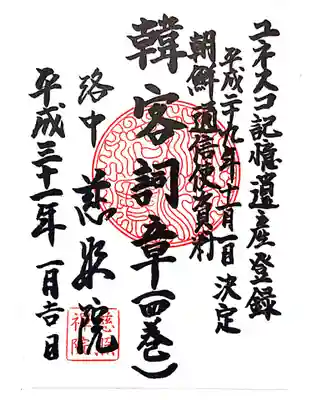 ユネスコ記憶遺産登録
平成二十九年十一月一日決定
朝鮮通信使資料
韓客詞章(四巻)
洛中 慈照院
平成三十一年 一月吉日
慈照
禅院